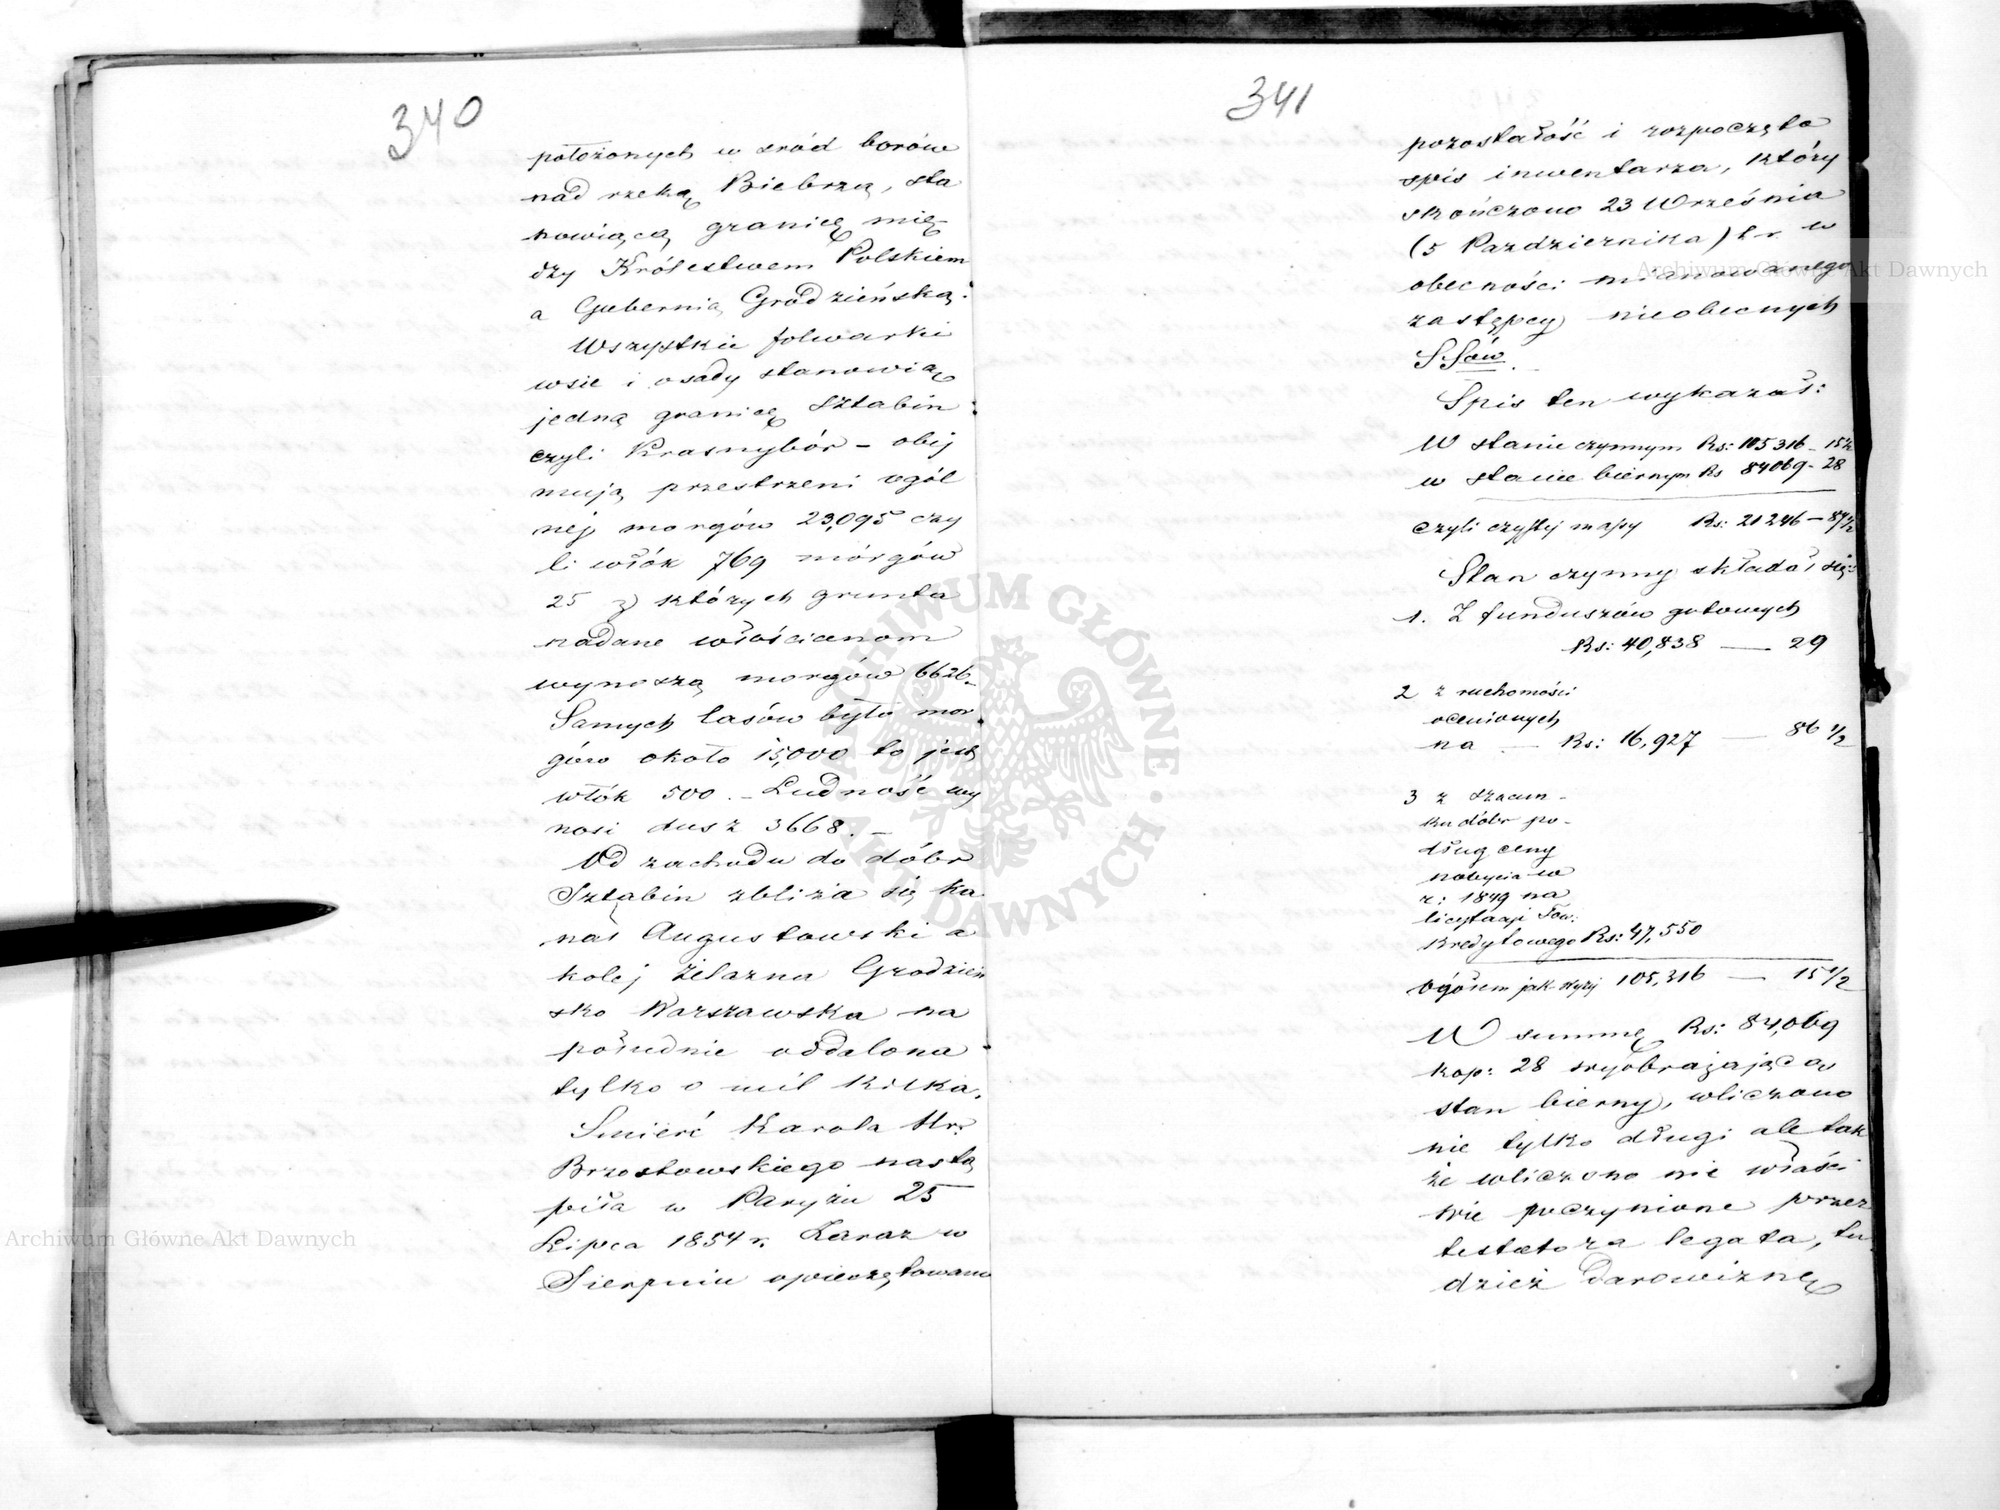 340
położonych w sród borów
nad rzeką Biebrzą, sta
nowiącą granicę mię
dzy Królestwem Polskiem
a Gubernią Grodzieńską.
Wszystkie folwarki
wsie i osady stanowią
jedną granicę Sztabin
czyli Krasnybór – obej
mują przestrzeni ogól
nej morgów 23,095 czy
li włók 769 mórgów
25 z których grunta
nadane włościanom
wynoszą morgów 6626 –
Samych lasów było mor
gów około 15,000 to jest
włók 500. – Ludność wy
nosi dusz 3668. –
Od zachodu do dóbr
Sztabin zbliża się ka
nał Augustowski a
kolej żelazna Grodzień
sko Warszawska na
południe oddalona
tylko o mil kilka.
Smierć Karola Hr:
Brzostowskiego nastą
piła w Paryżu 25
Lipca 1854 r. Zaraz w
Sierpniu opieczętowano
341
pozostałość i rozpoczęto
spis inwentarza, który
skończono 23 Września
(5 Pazdziernika) t. r. w
obecności mianowanego
zastępcy nieobecnych
SSów.
Spis ten wykazał:
W stanie czynnym Rs: 105316 – 15½
w stanie biernym Rs 84069 – 28
czyli czystej massy Rs: 21246 – 87½
Stan czynny składał się:
1. Z funduszów gotowych
Rs: 40,838 — 29
2 z ruchomości
ocenionych
na — Rs: 16,927 — 86 1/2
3 z szacun –
ku dóbr po –
dług ceny
nabycia w
r: 1849 na
licytacji Tow:
Kredytowego Rs: 47,550
Ogółem jak wyżej 105,316 — 15 1/2
W summę Rs: 84,069
kop: 28 wyobrażającą
stan bierny, wliczono
nie tylko długi ale tak
że wliczono nie właści
wie poczynione przez
testatora legata, tu
dzież darowiznę
Archiwum Główne Akt Dawnych
Archiwum Główne Akt Dawnych
ARCHIWUM GŁÓWNE AKT DAWNYCH